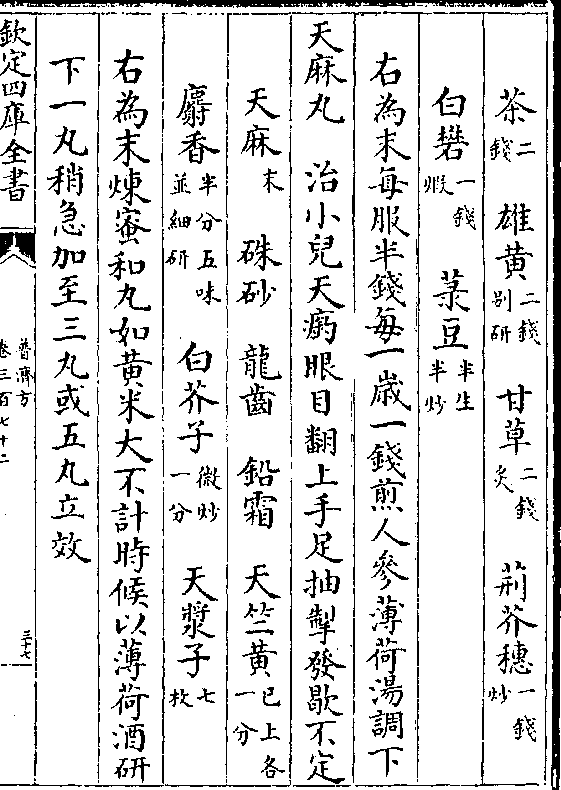 茶二錢 雄黄二錢别研 甘草二錢炙 荊芥穗一錢炒
白礬一錢煆 菉豆半生半炒
右為末每服半錢每一歲一錢煎人參薄荷湯調下
天麻丸 治小兒天瘹眼目翻上手足抽掣發歇不定
天麻末 硃砂 龍齒 鉛霜 天竺黄已上各一分
麝香半分五味並細研 白芥子微炒一分 天漿子七枚
右為末煉蜜和丸如黄米大不計時候以薄荷酒研
下一丸稍急加至三丸或五丸立效
欽定四庫全書
普濟方
卷三百七十二
三十七